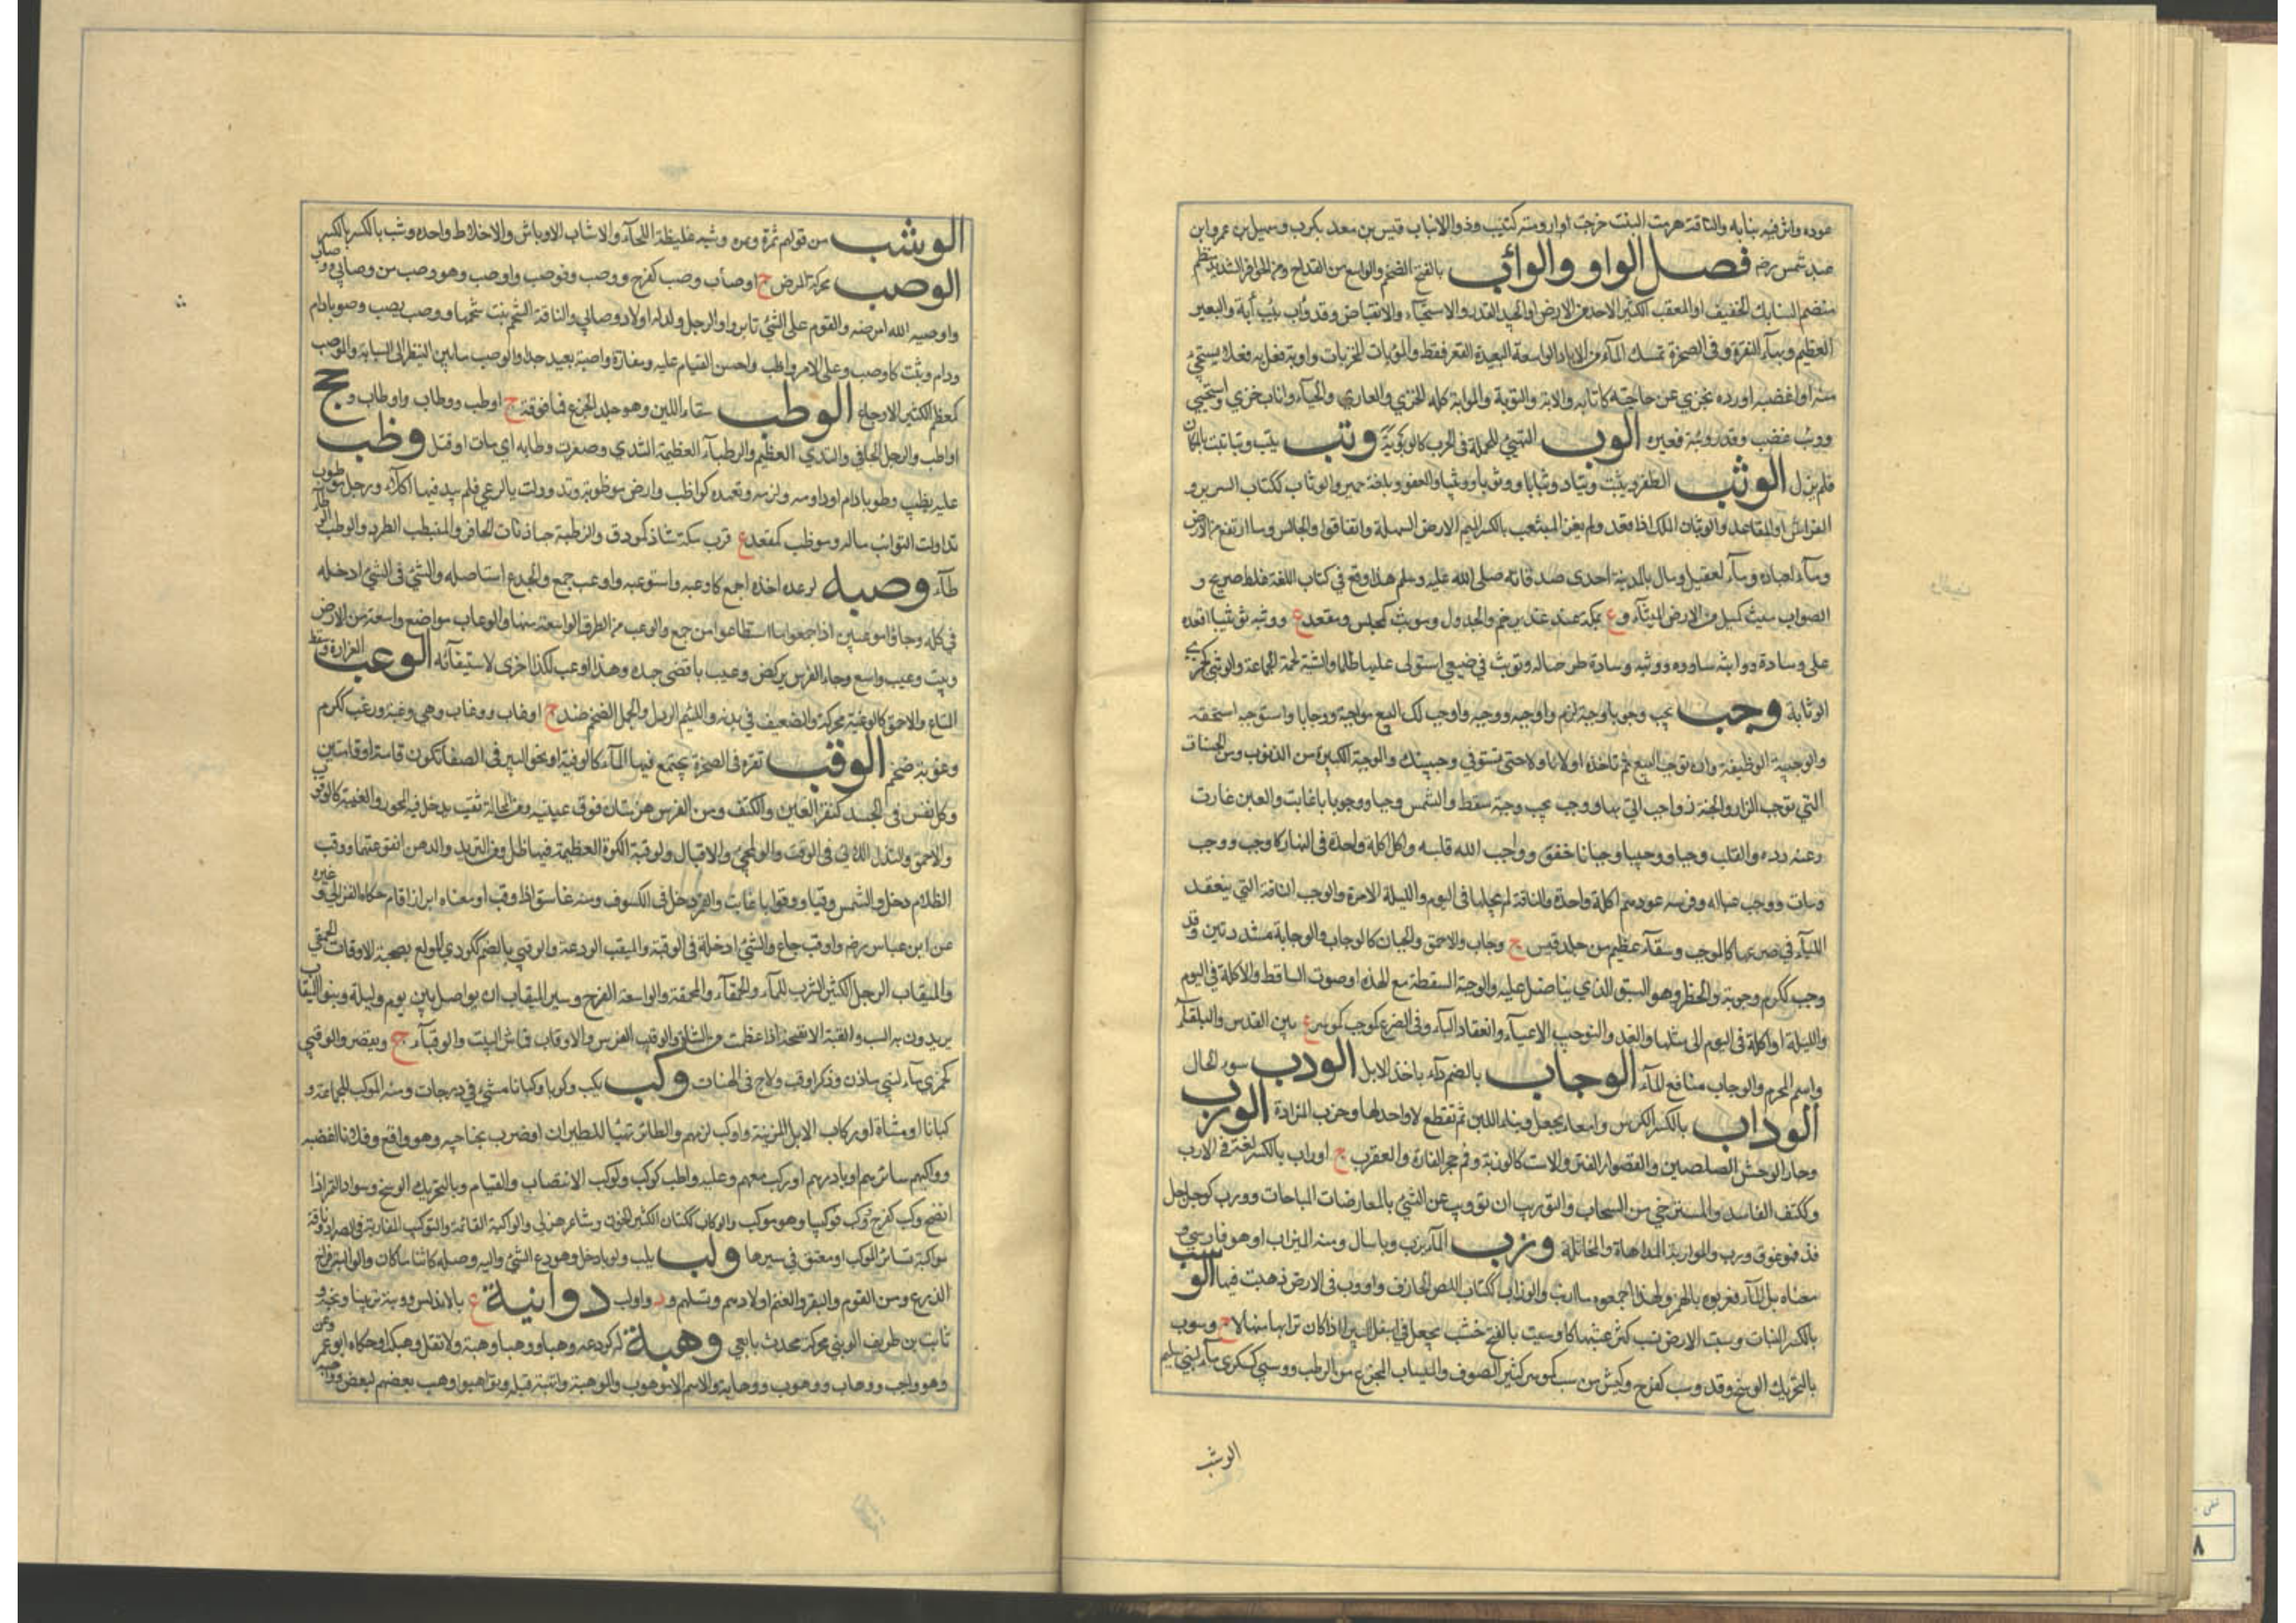 عوده واثر فيه بنابه والناقة هرمت البنت خرجت ارومته كنيب وذو الانياب قيس بن معد يكرب وسهيل بن عمرو ابن
عبد شمس رضه فصل الواو والوائب بالفتح الضخم والواسع من القداح ومن الحوافر الشديد منظم
منضم السنابك الخفيف او المقعب الكثير الاخذ من الارض او الجيد القدر والاستحياء والانقباض وقد وأب يئب أبة والبعير
العظيم وبهاء النقرة في الصخرة تمسك الماء من الابار الواسعة البعيدة القعر فقط والموئبات المخزيات واوبه فعل به فعلا يستحيى
منه او اغضبه او رده بخزي عن حاجته كاتابه والابة والتوبة والموابة كله الخزي والعار والحياء واتاب خزي واستحيى
ووئب غضب وقدر وئبة قعيرة الوب التهيئ للحملة في الحرب كالوبوبة وتب يتب وتبا ثبت بالمكان
فلم يزل الوثب الطفر وثب يثب وثبا ووثبانا ووثوبا ووثابا ووثيبا والقعود بلغة حمير والوثاب ككتاب السرير و
الفراش او المقاعد والوثبان الملك اذا قعد ولم يغز الميثب بالكسر الارض السهلة والقافز والجالس وما ارتفع من الارض
وماء لعبادة وماء لعقيل ومال بالمدينة احدى صدقاته صلى الله عليه وسلم هذا وقع في كتاب اللغة غلط صريح و
الصواب ميث كميل من الارض الميثاء وع بمكة عند غدير خم والجدول وموثب كمجلس ومقعد ع ووثبه توثيبا اقعده
على وسادة وواثبه ساوره ووثبه وسادة طرحها له وتوثب في ضيعتي استولى عليها ظلما والثبة لحمة الجماعة والوثبى كجمزى
الوثابة وجب يجب وجوبا وجبة لزم واوجبه ووجبه واوجب لك البيع مواجبة ووجابا واستوجبه استحقه
والوجيبة الوظيفة وان توجب البيع ثم تاخذه اولا فاولا حتى تستوفي وجيبتك والموجبة الكبيرة من الذنوب ومن الحسنات
التي توجب النار او الجنة واوجب اتى بها ووجب يجب وجبة سقط والشمس وجبا ووجوبا غابت والعين غارت
وعنه رده والقلب وجبا ووجيبا ووجبانا خفق واوجب الله قلبه واكل اكلة واحدة في النهار كاوجب ووجب
ومات ووجب عياله وفرسه عودهم اكلة واحدة والناقة لم يحلبها في اليوم والليلة الا مرة والوجب الناقة التي ينعقد
اللباء في ضرعها كالموجب وسقاء عظيم من جلد تيس ج وجاب والاحمق والجبان كالوجاب والوجابة مشددتين وقد
وجب ككرم وجوبة والخطر وهو السبق الذي يناضل عليه والوجبة السقطة مع الهدة او صوت الساقط والاكلة في اليوم
والليلة او اكلة في اليوم الى مثلها من الغد والتوجيب الاعياء وانعقاد اللباء في الضرع وموجب كموسر ع بين القدس والبلقاء
واسم المحرم والوجاب مناقع الماء الوجاب بالضم داء ياخذ الابل الودب سوء الحال
الوداب بالكسر الكرش وامعاء يجعل فيها اللبن ثم تقطع لا واحد لها وخرب المزادة الورب
وجار الوحش الضلعين والعضو والفتر والاست كالوربة وفم جحر الفارة والعقرب ج اوراب بالكسر لغة في الارب
وككتف الفاسد والمسترخي من السحاب والتوريب ان توري عن الشئ بالمعارضات المباحات وورب كوجل
فسد فهو ورب والمواربة المداهاة والمخاتلة وزب الماء يزب وزوبا سال ومنه الميزاب او هو فارسي و
معناه بل الماء فعربوه بالهمز ولهذا جمعوه مآزب والوزاب ككتان اللص الحاذق واوزب في الارض ذهب فيها الوسب
بالكسر النبات وسبت الارض تسب كثر عشبها كاوسبت بالفتح خشب يجعل في اسفل البير اذا كان ترابها منهالا ج وسوب
بالتحريك الوسخ وقد وسب كفرح وكبش موسب كموسر كثير الصوف والميساب المجزع من الرطب ووسبى كسكرى ماء لبني سليم
الوشب
الوشب من قولهم تمرة وشبة غليظة اللحاء والاشاب الاوباش والاخلاط واحده وشب بالكسر
الوصب محركة المرض ج اوصاب وصب كفرح ووصب وتوصب واوصب وهو وصب من وصابى ووصاب
واوصبه الله امرضه والقوم على الشئ ثابروا والرجل ولد له اولاد وصابى والناقة الشحم نبت شحمها ووصب يصب وصوبا دام
ودام وثبت كاوصب وعلى الامر واظب واحسن القيام عليه ومفازة واصبة بعيدة جدا والوصب ما بين البنصر الى السبابة والموصب
كمعظم الكثير الاوجاع الوطب سقاء اللبن وهو جلد الجذع فما فوقه ج اوطب ووطاب واوطاب وجج
اواطب والرجل الجافي والثدي العظيم والوطباء العظيمة الثدي وصفرت وطابه اي مات او قتل وظب
عليه يظب وظوبا دام او داومه ولزمه وتعهده كواظب وارض موظوبة تدوولت بالرعي فلم يبق فيها كلأ ورجل موظوب
تداولت النوائب ماله وموظب كمقعد ع قرب مكة شاذ كمورق والوظبة جهاز ذات الحافر والميظب الظرر والوظب الوطأ
طاء وصبه كوعده اخذه اجمع كاوعبه واستوعبه واوعب جمع والجدع استاصله والشئ في الشئ ادخله
في كله وجاؤا موعبين اذا جمعوا ما استطاعوا من جمع والوعب من الطرق الواسعة منها والوعاب مواضع واسعة من الارض
وبيت وعيب واسع وجاء الفرس بركض وعيب باقصى جهده وهذا اوعب لكذا احرى لاستيفائه الوغب الغرارة وسقط
المتاع والاحمق كالوغبة محركة والضعيف في بدنه واللئيم الرذل والجمل الضخم ضد ج اوغاب ووغاب وهي وغبة ووغب ككرم
وغوبة ضخم الوقب نقرة في الصخرة يجتمع فيها الماء كالوقبة او نحو البير في الصفا تكون قامة او قامتين
وكل نقر في الجسد كنقر العين والكتف ومن الفرس هزمتان فوق عينيه ومن المحالة ثقب يدخل فيه المحور والغيبة كالوقوب
والاحمق والنذل الدنئ والدخول في الوقب والمجئ والاقبال والوقبة الكوة العظيمة فيها ظل ومن الثريد والدهن انقوعتهما ووقب
الظلام دخل والشمس وقبا ووقوبا غابت والقمر دخل في الكسوف ومنه غاسق اذا وقب او معناه اير اذا قام حكاه الغزالي وغيره
عن ابن عباس رضه واوقب جاع والشئ ادخله في الوقبة والميقب الودعة والوقبي بالضم ككردي المولع بصحبة الاوقاب الحمقى
والميقاب الرجل الكثير الشرب للماء والحمقاء والمحمقة والواسعة الفرج وسير الميقاب ان يواصل بين يوم وليلة وبنو الميقاب
يريدون به السب والقبة الانفحة اذا عظمت من الشاة والوقب الفرس والاوقاب قماش البيت والوقباء ج ويقصر والوقبى
كجمزى ماء لبني مازن وذكر اوقب ولاج في الهنات وكب يكب وكوبا ووكبانا مشى في درجات ومنه الموكب للجماعة و
كبانا او مشاة او ركاب الابل للزينة واوكب لزمهم والطائر تهيا للطيران او ضرب بجناحيه وهو واقع وفلانا اغضبه
وواكبهم سايرهم او بادرهم او ركب معهم وعليه واظب كوكب واوكب الانتصاب والقيام وبالتحريك الوسخ وسواد التمر اذا
انضج وكب كفرح ووكب توكيبا وهو موكب والوكاب ككتان الكثير الحزن وشاعر هذلي والواكبة القائمة والتوكيب المقاربة في الصرار وناقة
مواكبة تساير الموكب او معنق في سيرها ولب يلب ولوبا دخل واسرع الشئ واليه وصله كائنا ما كان والوالبة فراخ
الزرع ومن القوم والبقر والغنم اولادهم ونسلهم ود واولب دوانية ع بالاندلس وونبه توبيبا وبخه و
ثابت بن طريف الونبي محركة محدث تابعي وهبة له كودعه وهبا ووهبا وهبة ولا تقل وهبكه او حكاه ابو عمرو عن
وهو واهب ووهاب ووهوب ووهابة والاسم الموهوب والموهبة واتهبه قبله وتواهبوا وهب بعضهم لبعض وواهبه